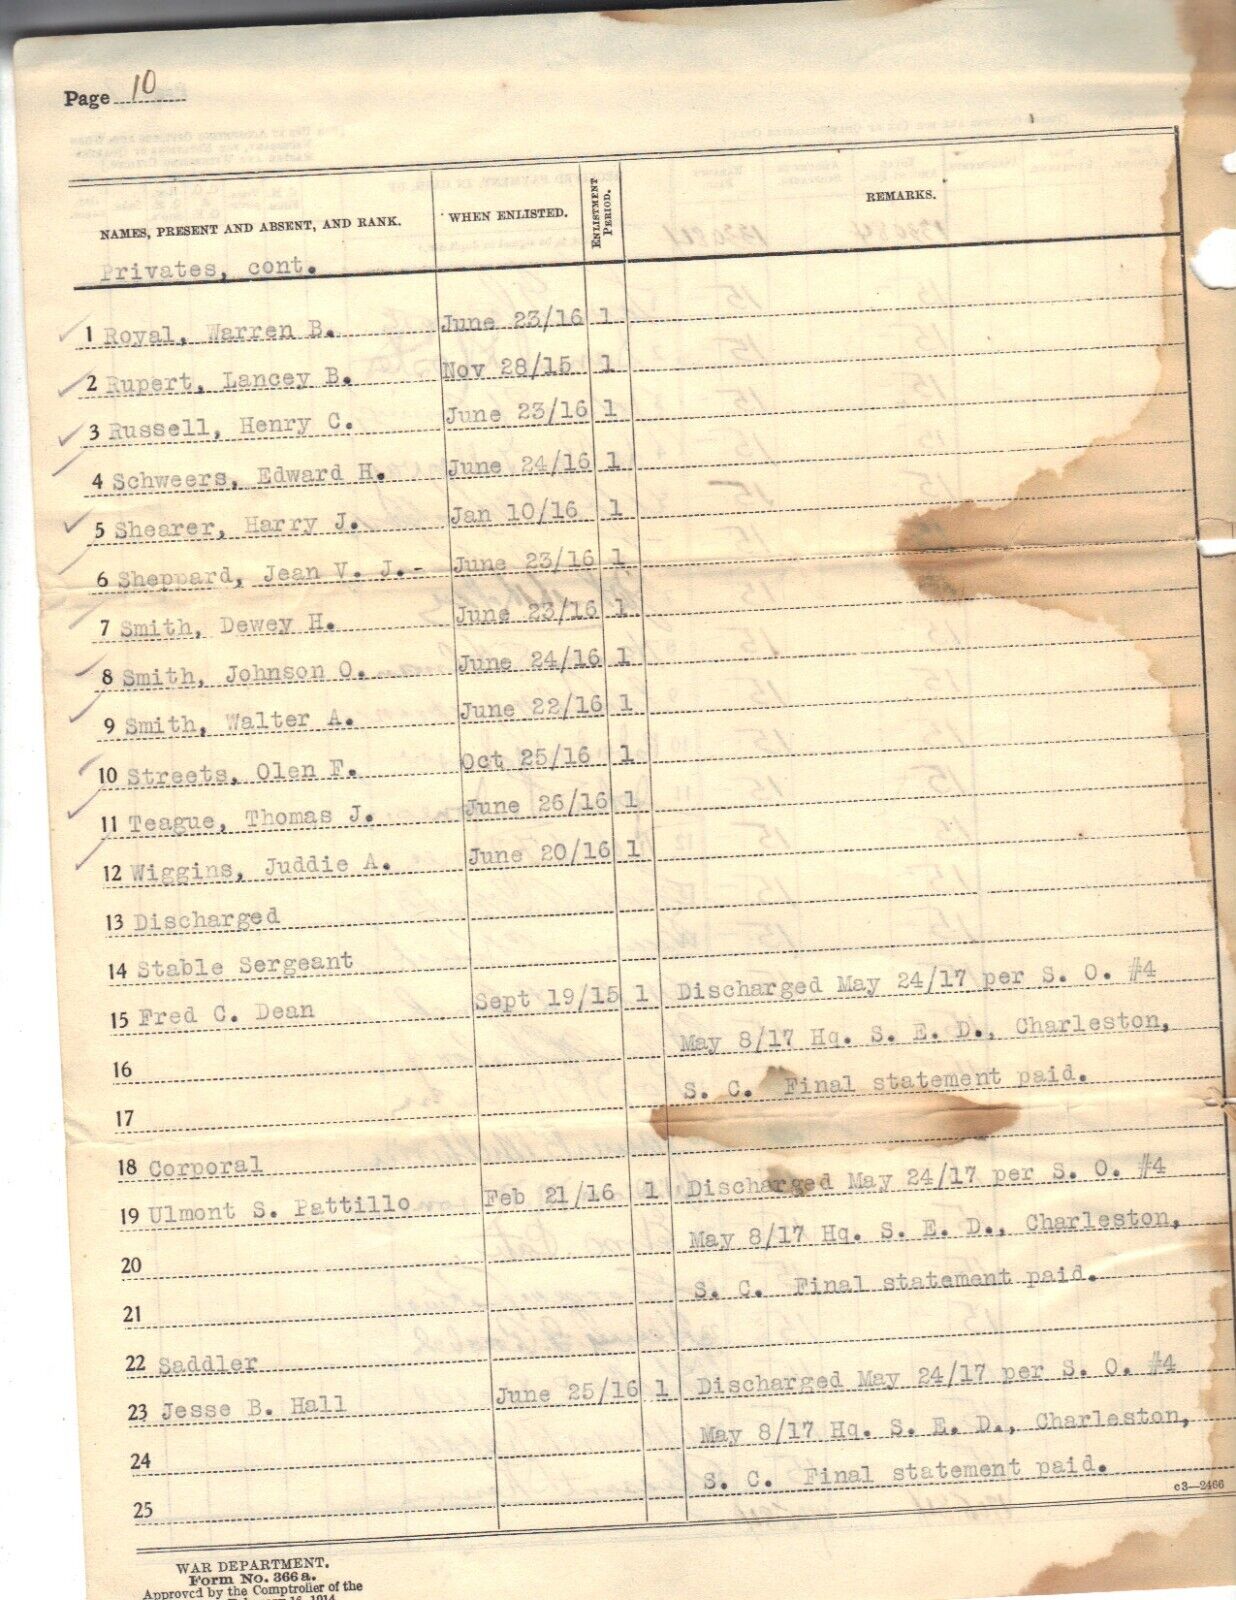 Page 10
NAMES, PRESENT AND ABSENT, AND RANK. WHEN ENLISTED. ENLISTMENT PERIOD. REMARKS.
Privates, cont.
1 Royal, Warren B. June 23/16 1
2 Rupert, Lancey B. Nov 28/15 1
3 Russell, Henry C. June 23/16 1
4 Schweers, Edward H. June 24/16 1
5 Shearer, Harry J. Jan 10/16 1
6 Sheppard, Jean V. J.- June 23/16 1
7 Smith, Dewey H. June 23/16 1
8 Smith, Johnson O. June 24/16 1
9 Smith, Walter A. June 22/16 1
10 Streets, Olen F. Oct 25/16 1
11 Teague, Thomas J. June 26/16 1
12 Wiggins, Juddie A. June 20/16 1
13 Discharged
14 Stable Sergeant
15 Fred C. Dean Sept 19/15 1 Discharged May 24/17 per S. O. #4
16 May 8/17 Hq. S. E. D., Charleston,
17 S. C. Final statement paid.
18 Corporal
19 Ulmont S. Pattillo Feb 21/16 1 Discharged May 24/17 per S. O. #4
20 May 8/17 Hq. S. E. D., Charleston,
21 S. C. Final statement paid.
22 Saddler
23 Jesse B. Hall June 25/16 1 Discharged May 24/17 per S. O. #4
24 May 8/17 Hq. S. E. D., Charleston,
25 S. C. Final statement paid.
c3—2466
WAR DEPARTMENT.
Form No. 366a.
Approved by the Comptroller of the
16, 1914